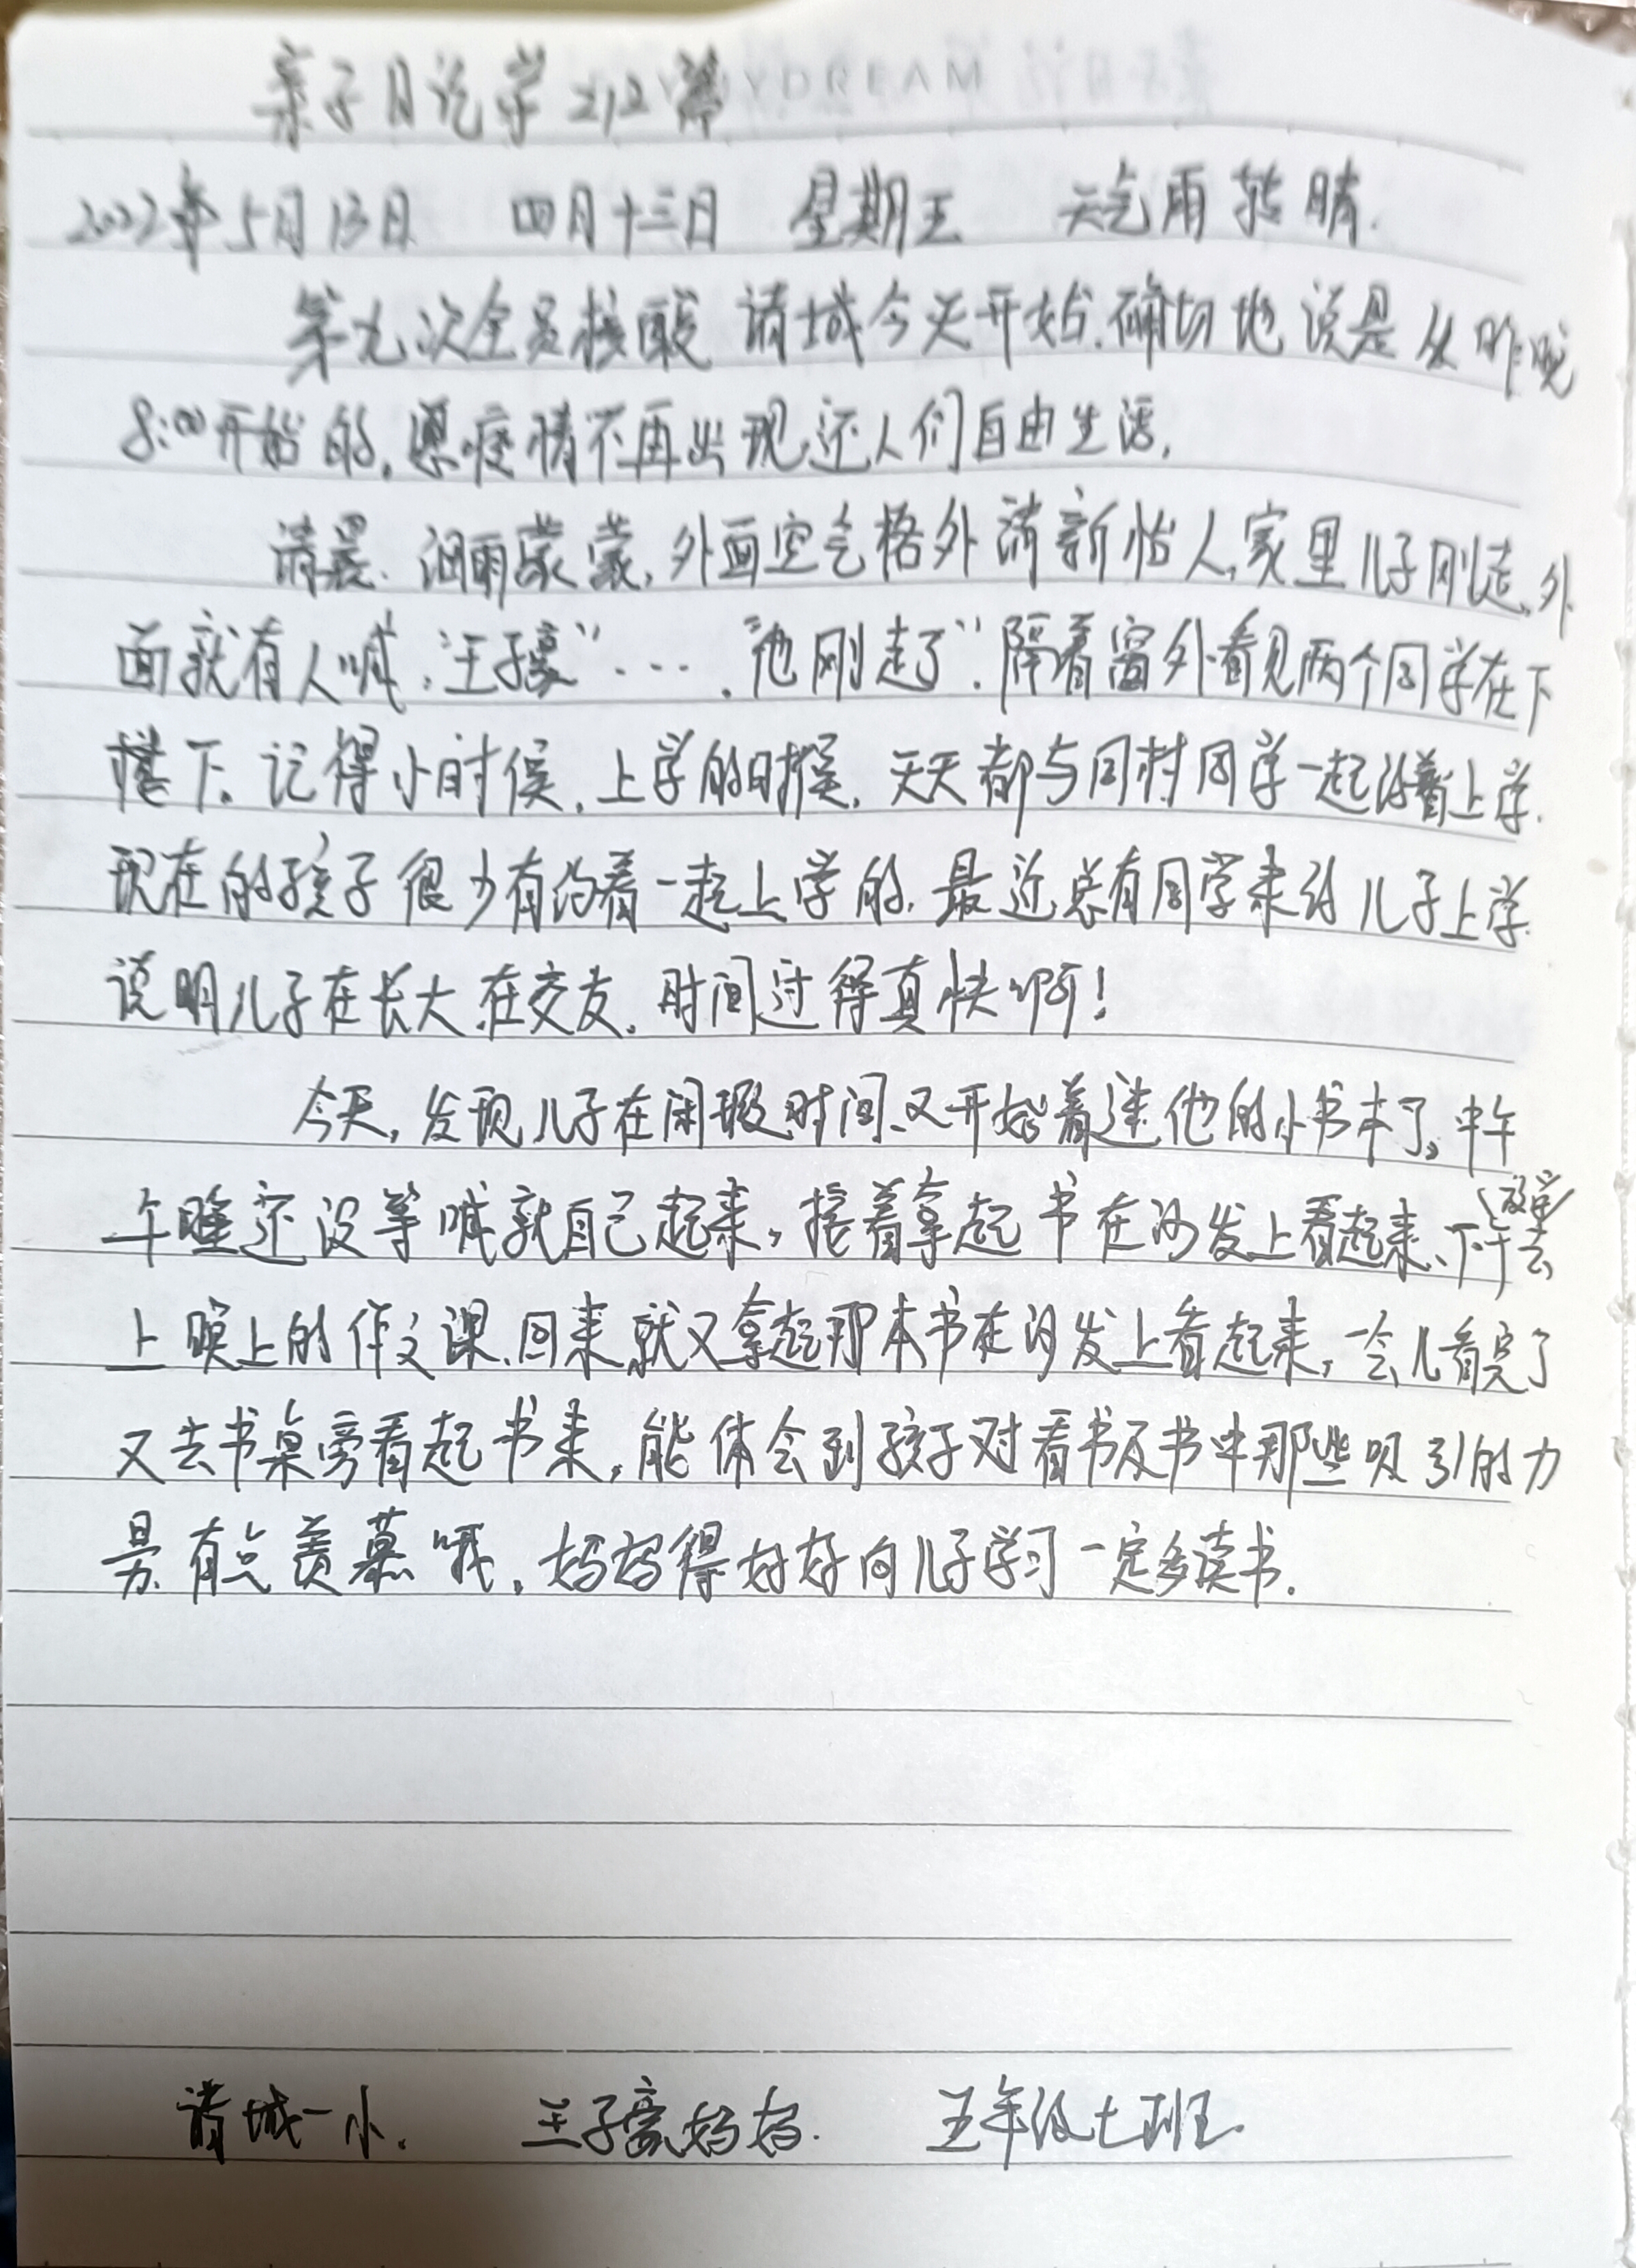 亲子日记第212篇
2022年5月13日 四月十三日 星期五 天气雨转晴.
第九次全员核酸 诸城今天开始.确切地说是从昨晚
8:00开始的,愿疫情不再出现,还人们自由生活.
清晨.细雨蒙蒙,外面空气格外清新怡人,家里儿子刚走,外
面就有人喊:"王子豪"….“他刚走了".隔着窗外看见两个同学在下
楼下。记得小时候,上学的时候,天天都与同村同学一起约着上学.
现在的孩子很少有约着一起上学的.最近总有同学来约儿子上学.
说明儿子在长大,在交友.时间过得真快啊!
今天,发现儿子在闲瑕时间、又开始着迷他的小书本了。中午
午睡还没等喊就自己起来,接着拿起书在沙发上看起来、下午去
上晚上的作文课、回来就又拿起那本书在沙发上看起来,一会儿看完了
又去书桌旁看起书来,能体会到孩子对看书及书中那些吸引的力
量.有点羡慕哦,妈妈得好好向儿子学习一定多读书.
诸城一小. 王子豪妈妈. 五年级七班.